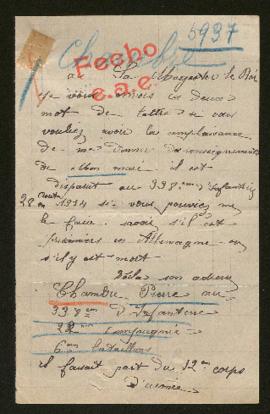 Chambre
5937
Fecho
e.a.e.
a Sa Magester le Roi
Je vous
mot de lettre se vous
vouliez avoir la complaisance
de me donner des renseignements
de mon mari il est
disparut au 338.em d'Infanterie
28 août 1914 si vous pouviez me
le faire savoir s'il est
prisonier en Allemagne ou
s'il y est mort
Voila son adresse
Chambre Pierre au
338em d'Infanterie
22em Compagnie
6em bataillon
il faisait part du 12em corps
d'armée